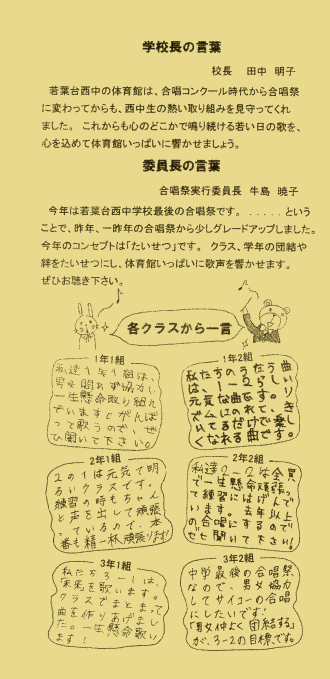 学校長の言葉
校長　田中　明子
若葉台西中の体育館は、合唱コンクール時代から合唱祭
に変わってからも、西中生の熱い取り組みを見守ってくれ
ました。これからも心のどこかで鳴り続ける若い日の歌を、
心を込めて体育館いっぱいに響かせましょう。
委員長の言葉
合唱祭実行委員長　牛島　暁子
今年は若葉台西中学校最後の合唱祭です。.....という
ことで、昨年、一昨年の合唱祭から少しグレードアップしました。
今年のコンセプトは「たいせつ」です。クラス、学年の団結や
絆をたいせつにし、体育館いっぱいに歌声を響かせます。
ぜひお聴き下さい。
各クラスから一言
1年1組
私達1年1組は、
男女関わらず協力し
一生懸命取り組ん
でいます。がんば
って歌うので、ぜ
ひ聞いて下さい。
1年2組
私たちのうたう曲
は、
元気な曲
くなれる曲です。
2年1組
2の1は元気で明
るいクラスです。
練習の時もちゃん
と声を出して頑張
っているので、本
番も精一杯頑張ります!
2年2組
私達2-2は全員
で一生懸命頑張っ
て練習にはげんで
います。去年以上
の合唱にするので
ぜひ聞いて下さい!
3年1組
私たち3-1は、
「未来」を歌います。
クラスでまとまって
曲を作りあげまし
た。一生懸命歌い
ます!
3年2組
中学最後の合唱祭
なので、男女協力
してサイコーの合唱
にしたいです!
「男女仲よく団結する」
が、3-2の目標です。